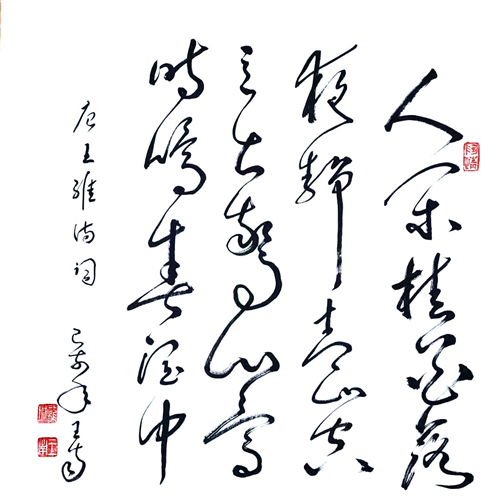 人闲桂花落
夜静春山空
月出惊山鸟
时鸣春涧中
唐王维诗词
己亥年王